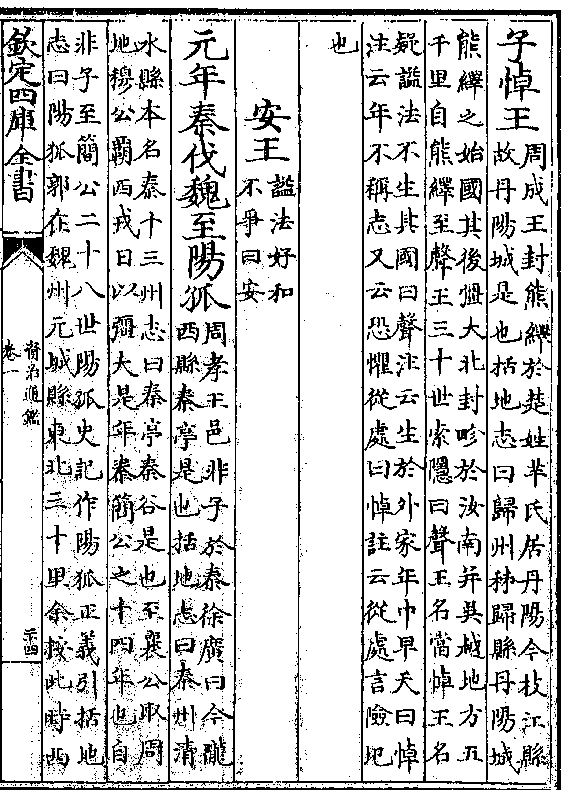 子悼王
周成王封熊繹於楚姓芈氏居丹陽今枝江縣
故丹陽城是也括地志曰歸州秭歸縣丹陽城
熊繹之始國其後彊大北封畛於汝南并吳越地方五
千里自熊繹至聲王三十世索隱曰聲王名當悼王名
疑諡法不生其國曰聲注云生於外家年中早夭曰悼
注云年不稱志又云恐懼從處曰悼註云從處言險圯
也
安王
諡法好和
不爭曰安
元年秦伐魏至陽狐
周孝王邑非子於秦徐廣曰今隴
西縣秦亭是也括地志曰秦州清
水縣本名秦十三州志曰秦亭秦谷是也至襄公取周
地穆公霸西戎日以彌大是年秦簡公之十四年也自
非子至簡公二十八世陽狐史記作陽狐正義引括地
志曰陽狐郭在魏州元城縣東北三十里余按此時西
欽定四庫全書
資治通鑑
卷一
二十四